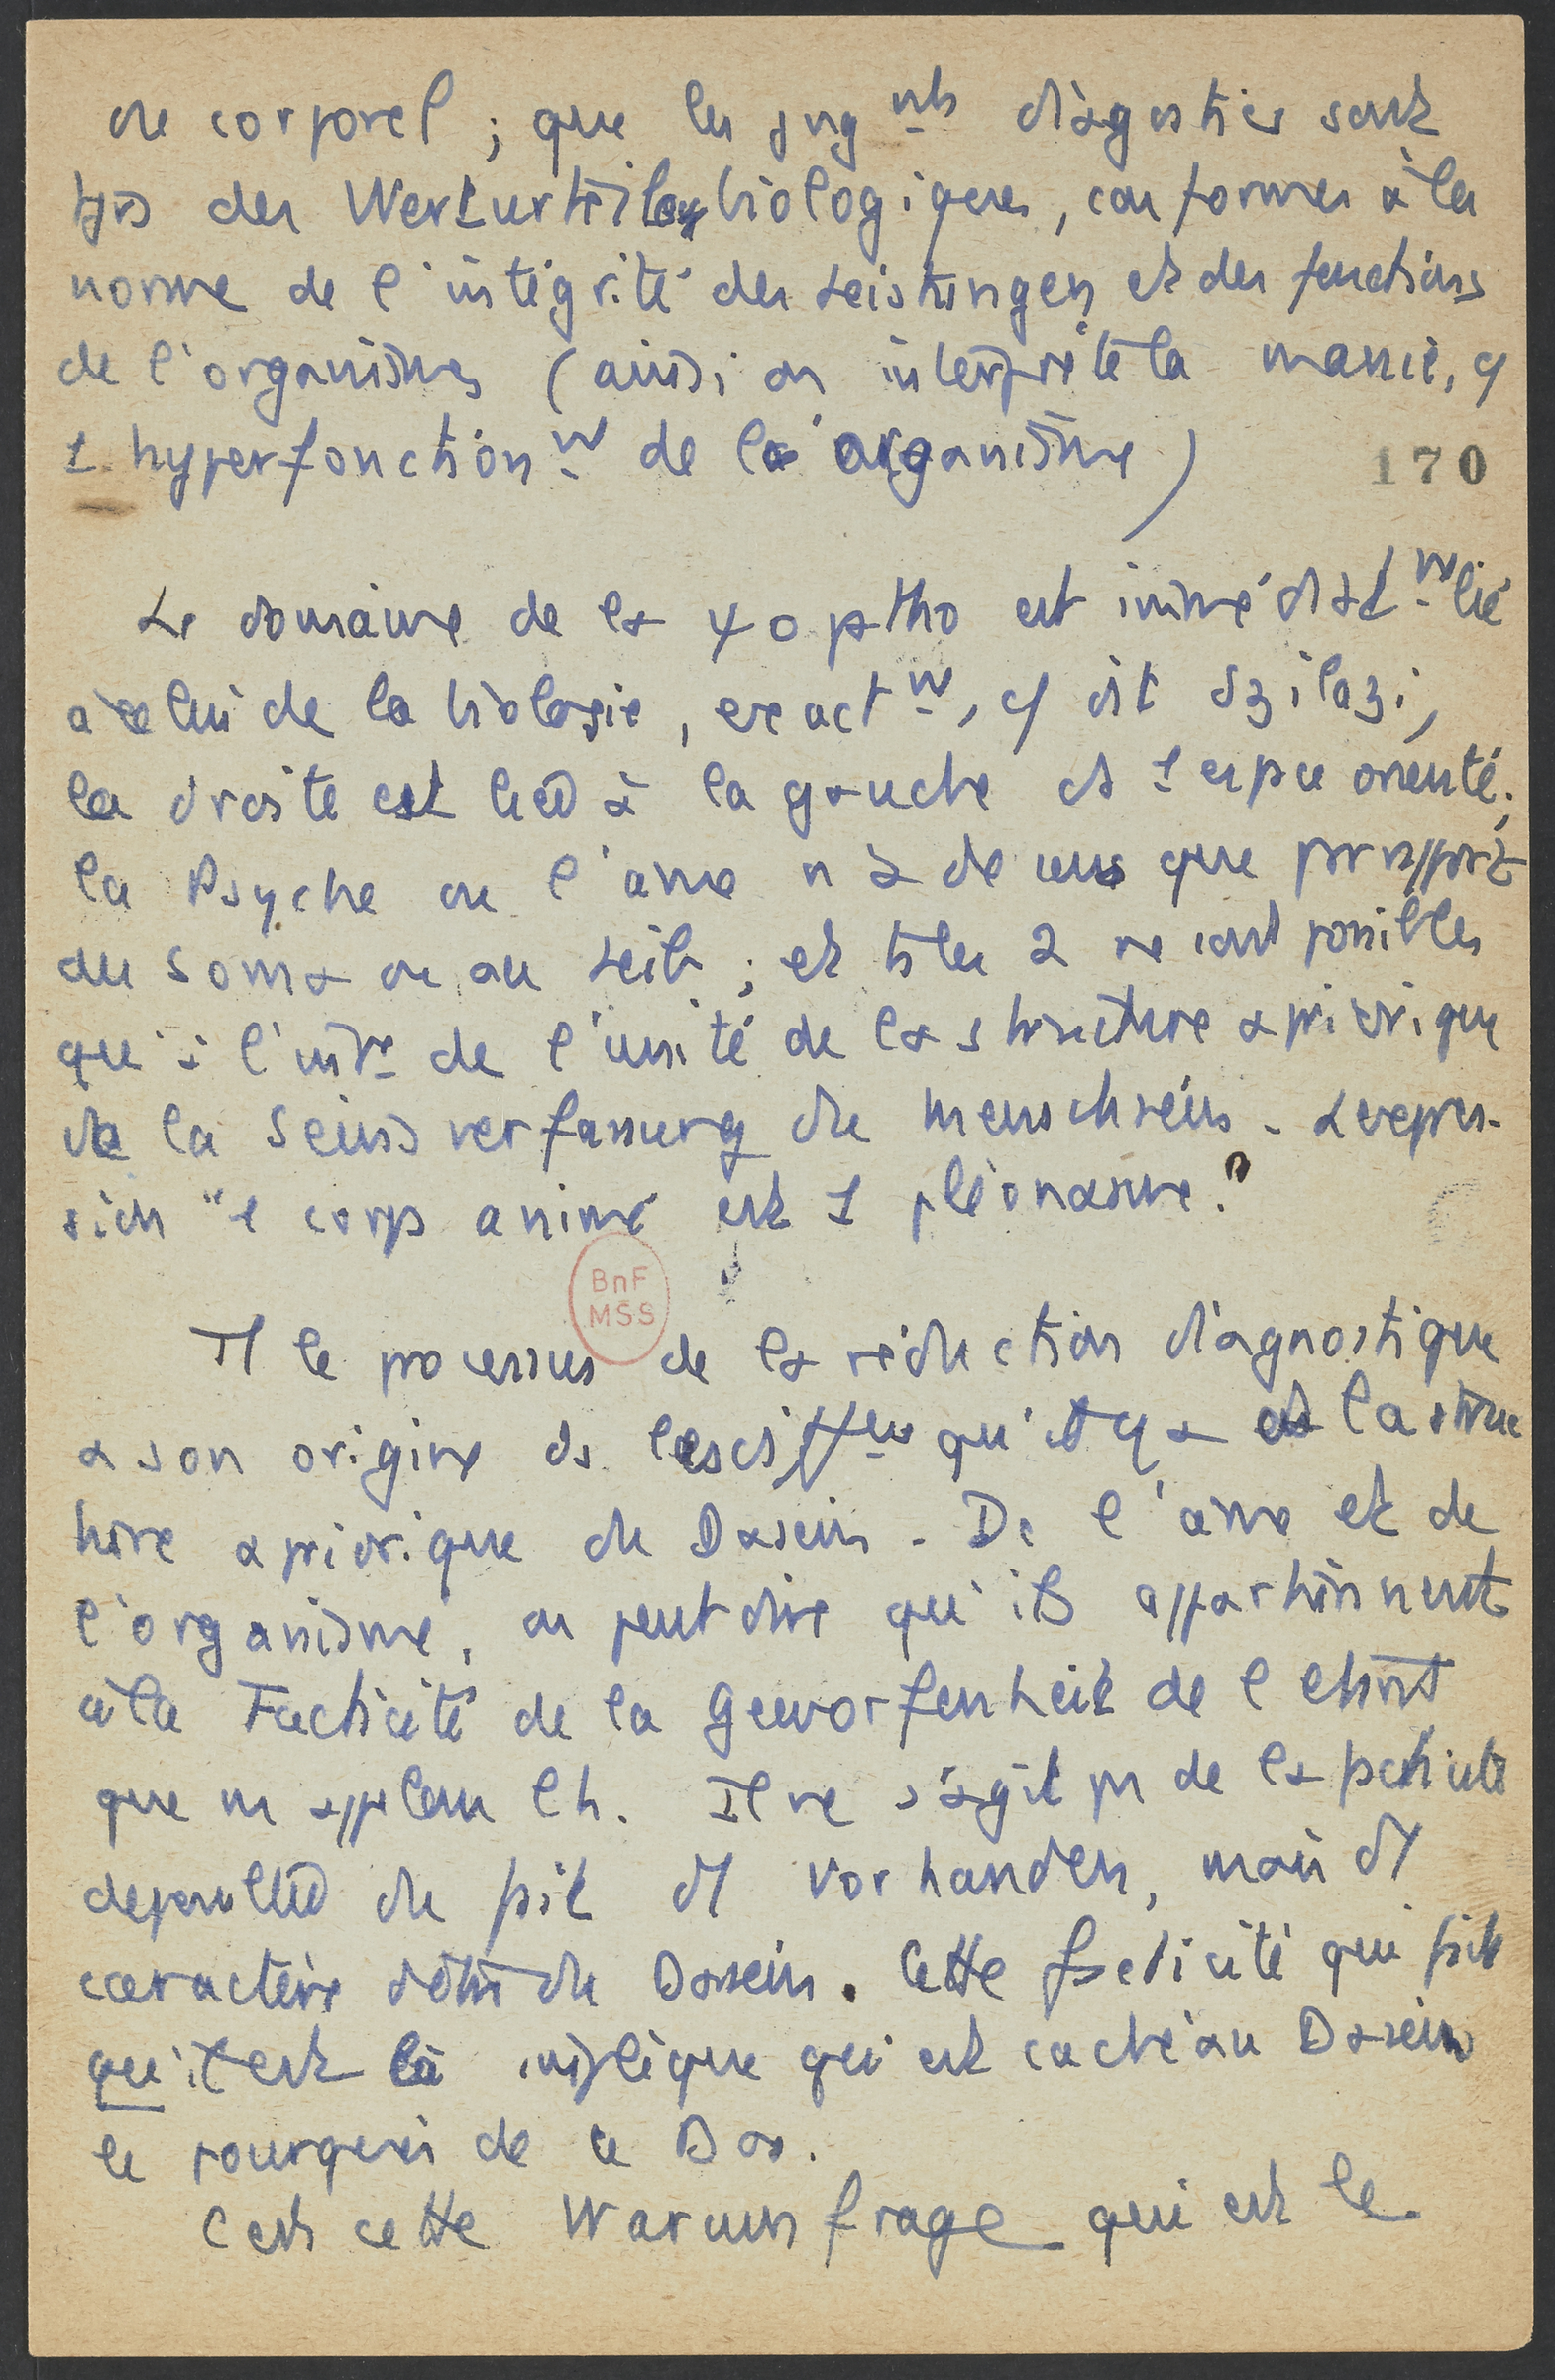 de corporel ; que les jugnts diagostics sont
tjs des Werturteilen biologiques, conformes à la
norme de l'intégrité des Leistungen et des fonctions
de l'organismes (ainsi on interprète la manie, c/
1 hyperfonctionnt de l'organisme)
170
Le domaine de la ψopatho est immédiatnt lié
à celui de la biologie, exactnt, c/ dit Szilazi,
la droite est liée à la gauche ds 1 espace orienté ;
la Psyche ou l'âme n'a de sens que par rapport
au soma ou au Leib ; et ts les 2 ne sont possibles
qu'à l'intr de l'unité de la structure apriorique
de la Seinsverfassung du Menschseins. L'expres-
sion "1 corps animé est 1 pléonasme."
Tt le processus de la réduction diagnostique
a son origine ds qu'il y a ds la struc
ture apriorique du Dasein. De l'âme et de
l'organisme, on peut dire qu'ils appartiennent
à la Facticité de la Geworfenheit de l'
que ns appelons h. Il ne s'agit pas de la facticité
du fait d'1 vorhanden, mais d'1
caractère d'être du Dasein. Cette facticité qui fait
qu'il est là implique qui est caché au Dasein
le pourquoi de ce Da.
C'est cette Warumfrage qui est le
BnF
MSS